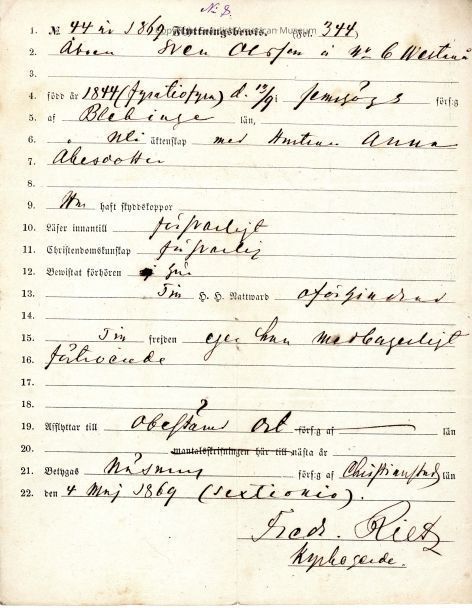 № 8.
1. № 44 år 1869 Flyttningsbewis. (Fol. 344)
2. Åboen Sven Olsson å № 6
3.
4. född år 1844 (fyratiofyra) d. 13/9 i förs:g
5. af Blekinge län,
6. i äktenskap med Hustrun Anna
7.
8.
9. haft skyddskoppor
10. Läser innantill försvarligt
11. Christendomskunskap försvarlig
12. Bewistat förhören
13. Till H. H. Nattward oförhindrad
14.
15. Till frejden eger han medborgerligt
16. förtroende
17.
18.
19. Afflyttar till obestämd ort förs:g af län
20. mantalsskrifningen här till nästa år
21. Betygas Näsum förs:g af Christianstads län
22. den 4 Maj 1869 (sextionio).
Fredr. Rietz
Kyrkoherde.